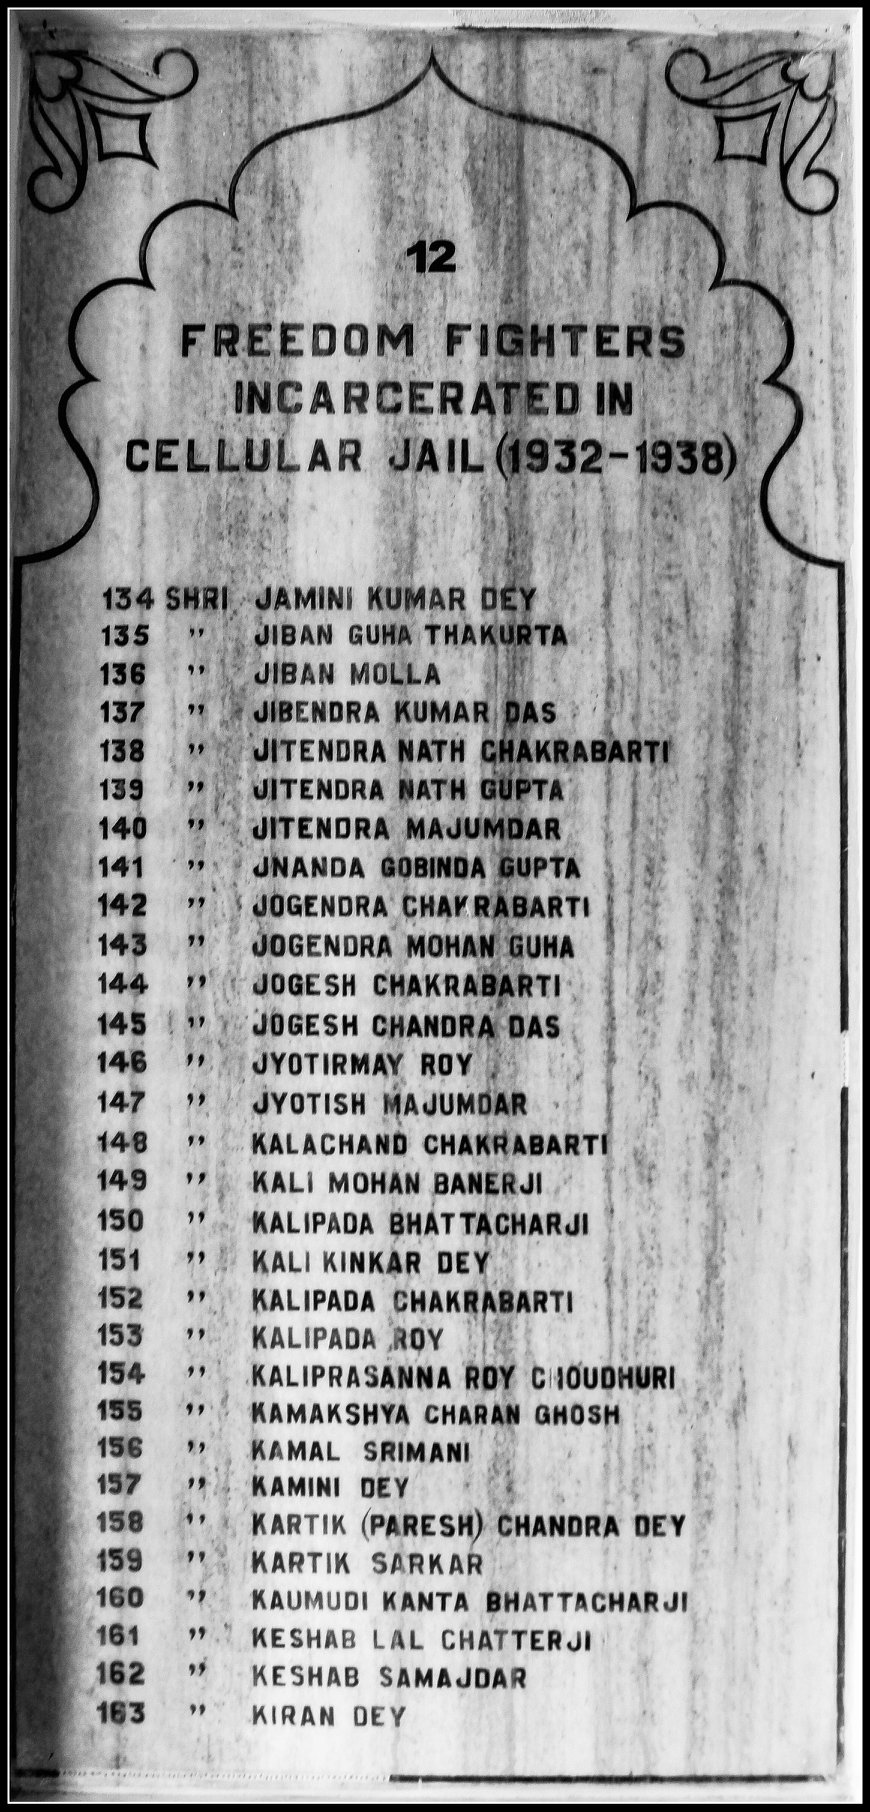 12
FREEDOM FIGHTERS
INCARCERATED IN
CELLULAR JAIL (1932-1938)
134 SHRI JAMINI KUMAR DEY
135 " JIBAN GUHA THAKURTA
136 " JIBAN MOLLA
137 " JIBENDRA KUMAR DAS
138 " JITENDRA NATH CHAKRABARTI
139 " JITENDRA NATH GUPTA
140 " JITENDRA MAJUMDAR
141 " JNANDA GOBINDA GUPTA
142 " JOGENDRA CHAKRABARTI
143 " JOGENDRA MOHAN GUHA
144 " JOGESH CHAKRABARTI
145 " JOGESH CHANDRA DAS
146 " JYOTIRMAY ROY
147 " JYOTISH MAJUMDAR
148 " KALACHAND CHAKRABARTI
149 " KALI MOHAN BANERJI
150 " KALIPADA BHATTACHARJI
151 " KALI KINKAR DEY
152 " KALIPADA CHAKRABARTI
153 " KALIPADA ROY
154 " KALIPRASANNA ROY CHOUDHURI
155 " KAMAKSHYA CHARAN GHOSH
156 " KAMAL SRIMANI
157 " KAMINI DEY
158 " KARTIK (PARESH) CHANDRA DEY
159 " KARTIK SARKAR
160 " KAUMUDI KANTA BHATTACHARJI
161 " KESHAB LAL CHATTERJI
162 " KESHAB SAMAJDAR
163 " KIRAN DEY